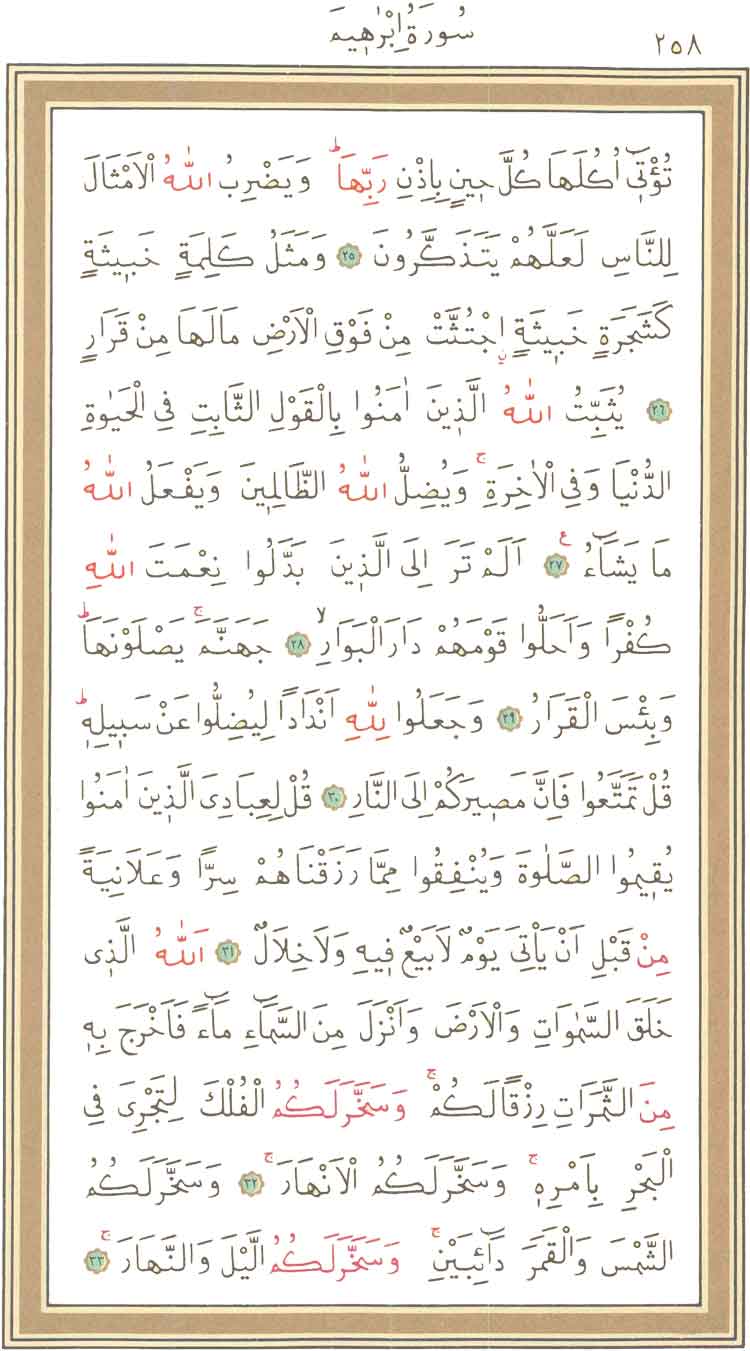 سُورَةُ اِبْرٰه۪يمَ
٢٥٨
تُؤْت۪ٓي اُكُلَهَا كُلَّ ح۪ينٍ بِاِذْنِ رَبِّهَاۜ وَيَضْرِبُ اللّٰهُ الْاَمْثَالَ
لِلنَّاسِ لَعَلَّهُمْ يَتَذَكَّرُونَ ٢٥ وَمَثَلُ كَلِمَةٍ خَب۪يثَةٍ
كَشَجَرَةٍ خَب۪يثَةٍۨ اجْتُثَّتْ مِنْ فَوْقِ الْاَرْضِ مَا لَهَا مِنْ قَرَارٍ
٢٦ يُثَبِّتُ اللّٰهُ الَّذ۪ينَ اٰمَنُوا بِالْقَوْلِ الثَّابِتِ فِي الْحَيٰوةِ
الدُّنْيَا وَفِي الْاٰخِرَةِۚ وَيُضِلُّ اللّٰهُ الظَّالِم۪ينَ وَيَفْعَلُ اللّٰهُ
مَا يَشَٓاءُ۟ ٢٧ اَلَمْ تَرَ اِلَى الَّذ۪ينَ بَدَّلُوا نِعْمَتَ اللّٰهِ
كُفْرًا وَاَحَلُّوا قَوْمَهُمْ دَارَ الْبَوَارِۙ ٢٨ جَهَنَّمَۚ يَصْلَوْنَهَاۜ
وَبِئْسَ الْقَرَارُ ٢٩ وَجَعَلُوا لِلّٰهِ اَنْدَادًا لِيُضِلُّوا عَنْ سَب۪يلِه۪ۜ
قُلْ تَمَتَّعُوا فَاِنَّ مَص۪يرَكُمْ اِلَى النَّارِ ٣٠ قُلْ لِعِبَادِيَ الَّذ۪ينَ اٰمَنُوا
يُق۪يمُوا الصَّلٰوةَ وَيُنْفِقُوا مِمَّا رَزَقْنَاهُمْ سِرًّا وَعَلَانِيَةً
مِنْ قَبْلِ اَنْ يَأْتِيَ يَوْمٌ لَا بَيْعٌ ف۪يهِ وَلَا خِلَالٌ ٣١ اَللّٰهُ الَّذ۪ي
خَلَقَ السَّمٰوَاتِ وَالْاَرْضَ وَاَنْزَلَ مِنَ السَّمَٓاءِ مَٓاءً فَاَخْرَجَ بِه۪
مِنَ الثَّمَرَاتِ رِزْقًا لَكُمْۚ وَسَخَّرَ لَكُمُ الْفُلْكَ لِتَجْرِيَ فِي
الْبَحْرِ بِاَمْرِه۪ۚ وَسَخَّرَ لَكُمُ الْاَنْهَارَۚ ٣٢ وَسَخَّرَ لَكُمُ
الشَّمْسَ وَالْقَمَرَ دَٓائِبَيْنِۚ وَسَخَّرَ لَكُمُ الَّيْلَ وَالنَّهَارَۚ ٣٣